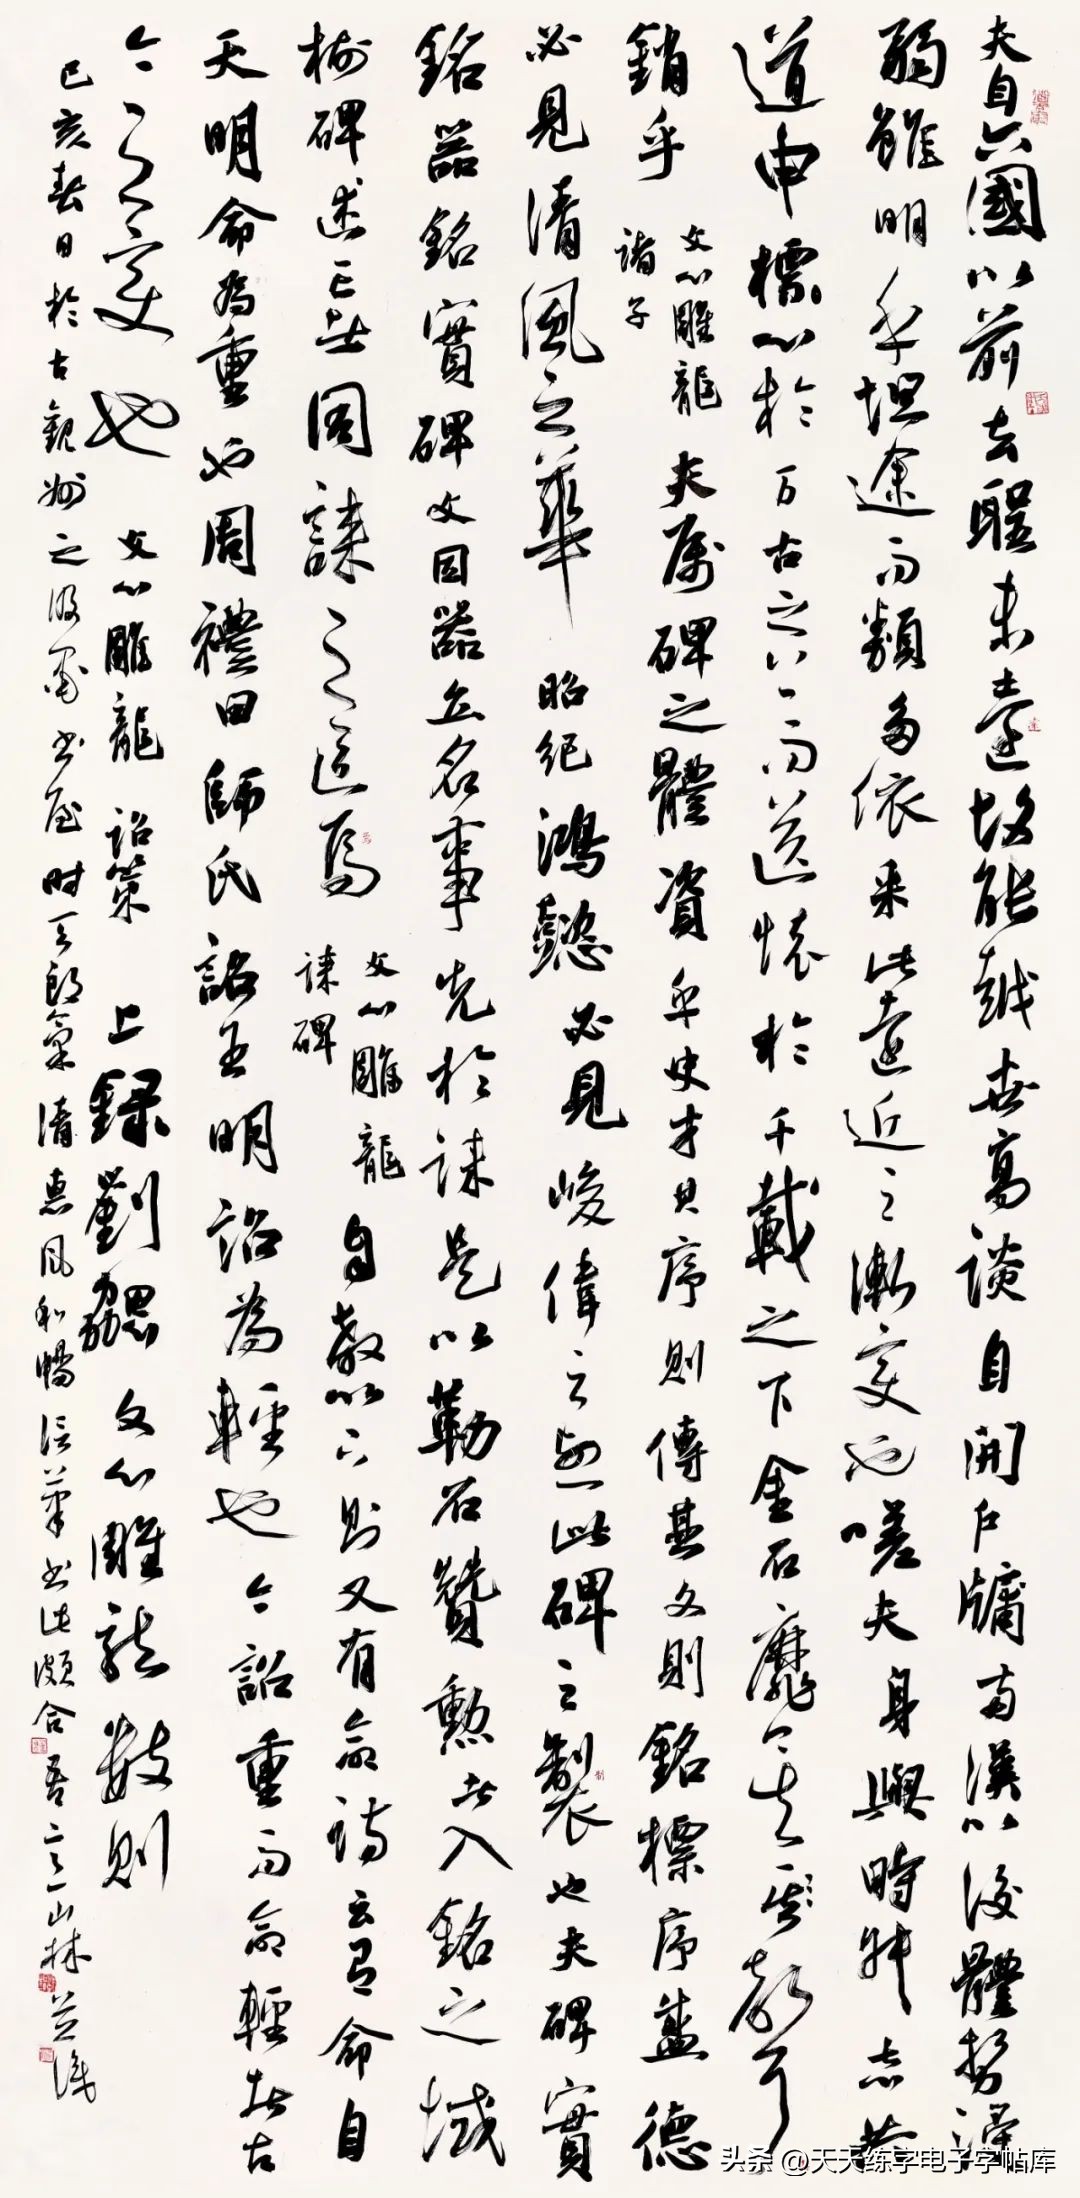 夫自六國以前去聖未遠故能越世高談自開戶牖兩漢以後體勢浸
弱雖明乎坦途而類多依采此遠近之漸變也嗟夫身與時舛志共
道申標心於万古之上而送懷於千載之下金石靡矣其聲
銷乎 文心雕龍諸子 夫屬碑之體資乎史才其序則傳其文則銘標序盛德
必見清風之華昭紀鴻懿必見峻偉之烈此碑之製也夫碑實
銘器銘實碑文因器立名事先於誄是以勒石贊勳者入銘之域
樹碑述亡者同誄之區焉 文心雕龍誄碑 自教以下則又有命詩云有命自
天明命為重也周禮曰師氏詔王明詔為輕也今詔重而命輕者古
今之變也 文心雕龍 詔策 上錄劉勰文心雕龍數則
己亥春日於古觀州之汲書屋时天朗氣清惠風和暢信筆书此頗合吾意山林并識
头条 @天天练字电子字帖库